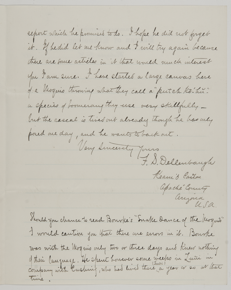 report which he promised to do. I hope he did not forget
it. If he did let me know and I will try again because
there are some articles in it that would much interest
you I am sure. I have started a large canvas here
of a Moqui throwing what they call a
a species of boomerang they use very skillfully –
but the rascal is tired out already though he has only
posed one day, and he wants to back out.
Very Sincerely Yours
F. S. Dellenbaugh
Keam's Cañon
Apache County
Arizona
U.S.A.
Should you chance to read Bourke's "Snake Dance of the Moquis"
I would caution you that there are errors in it. Bourke
was with the Moquis only two or three days and knew nothing
of their language. He spent some weeks in Zuñi in
company with Cushing, who had lived there a year or so at that
time.